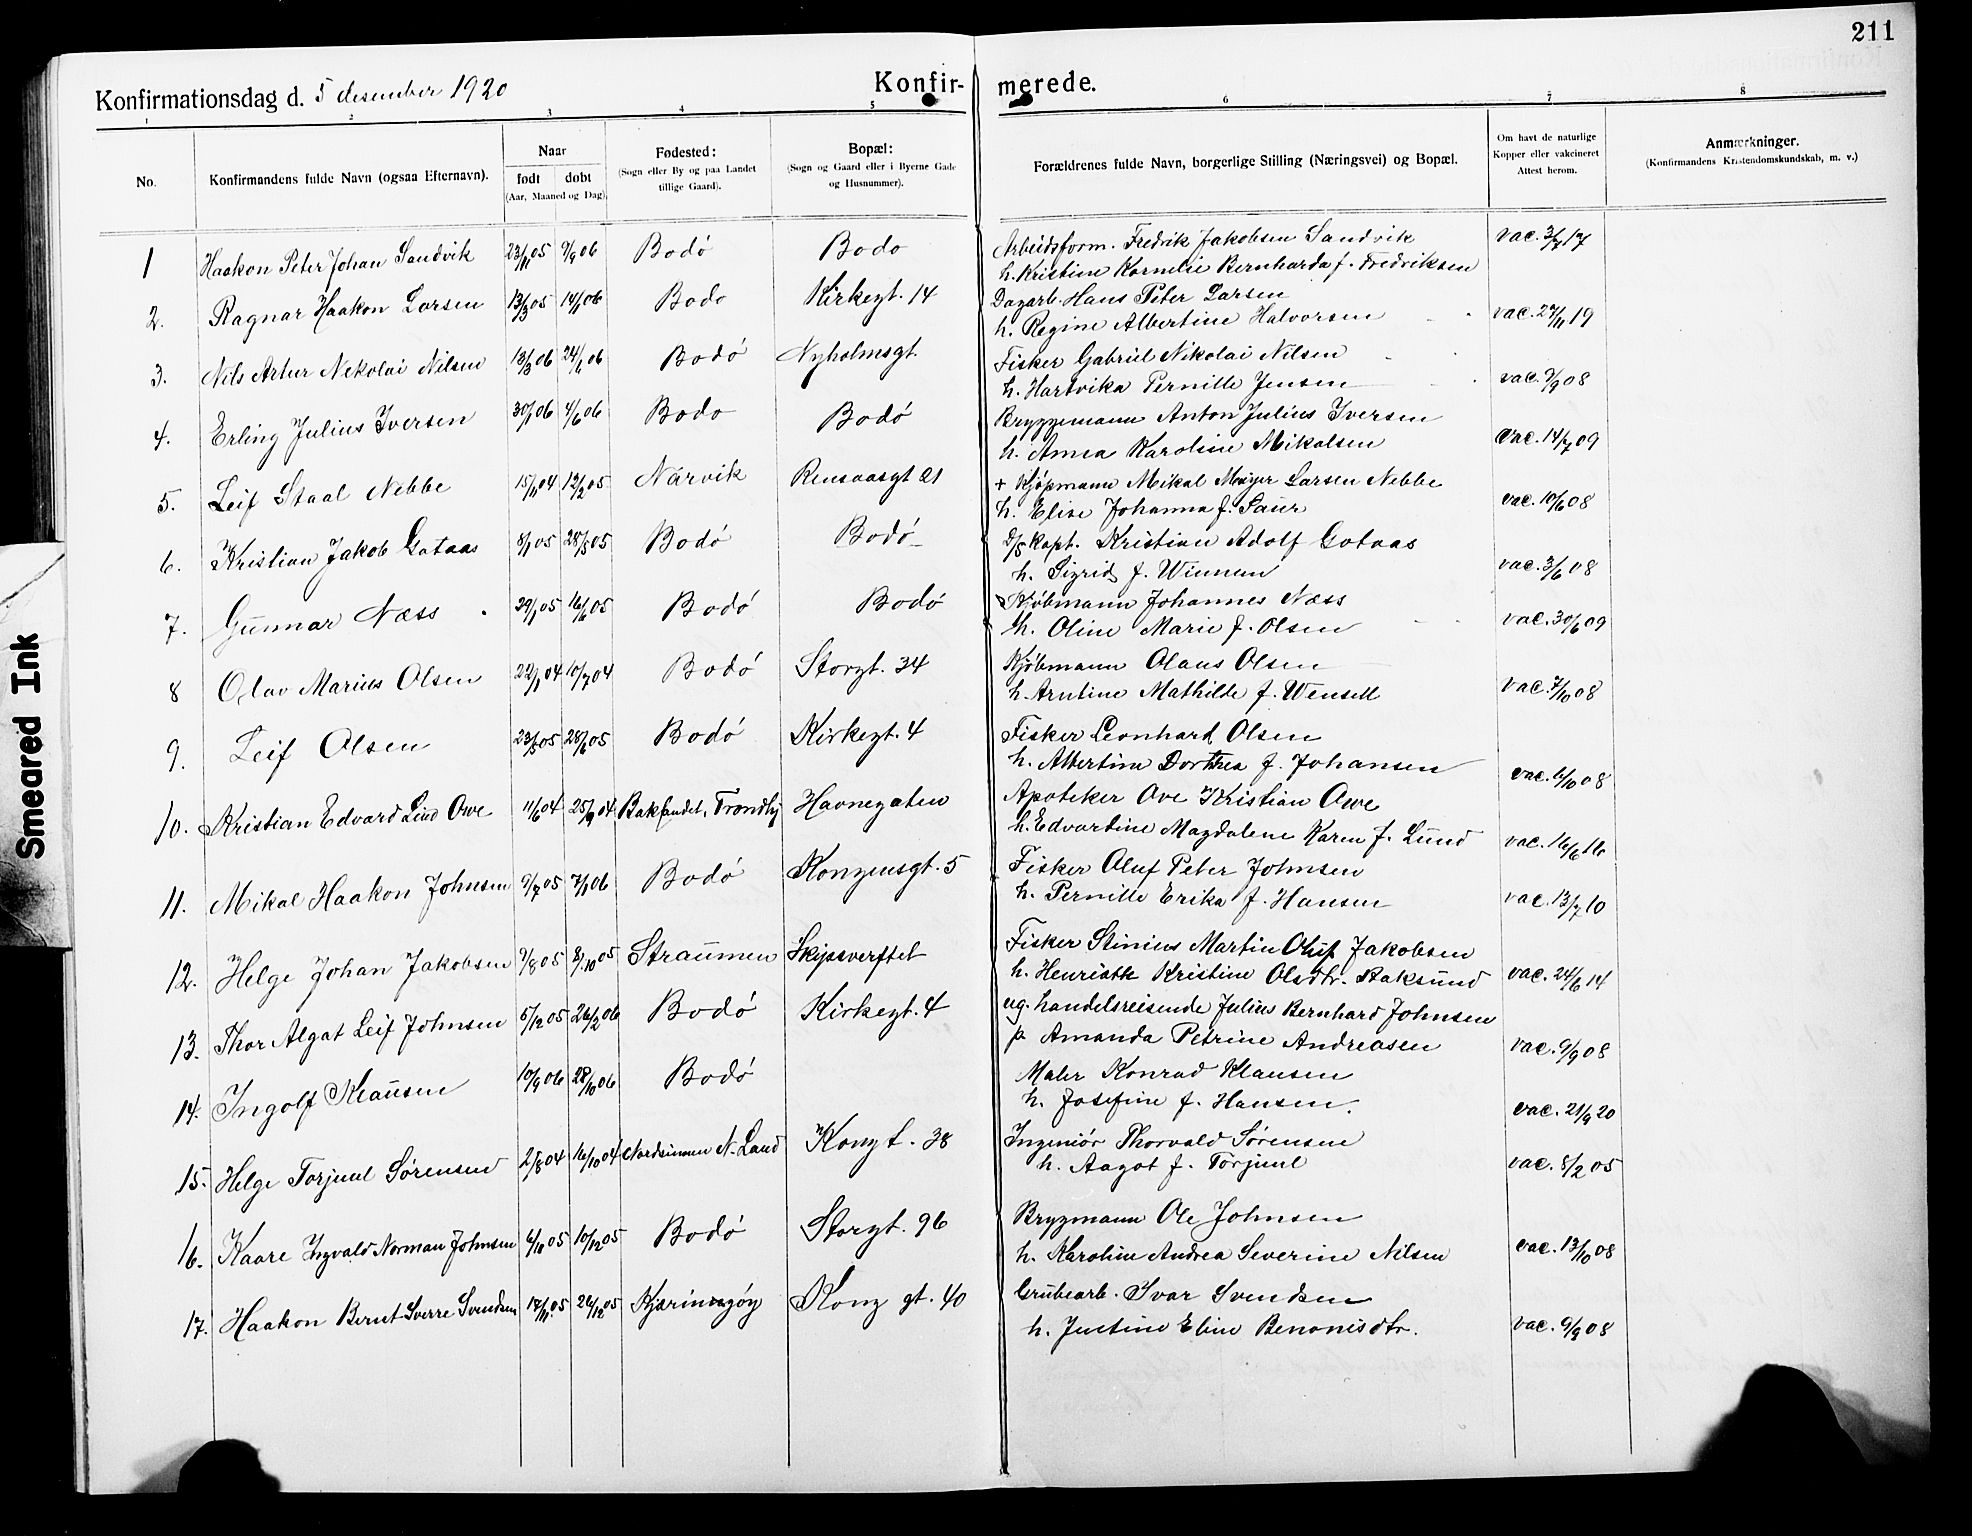 211
Konfirmationsdag d. 5 desember 1920
Konfir-
merede.
1 2 3 4 5 6 7 8
No.
Konfirmandens fulde Navn (ogsaa Efternavn).
Naar
født døbt
(Aar, Maaned og Dag).
Fødested:
(Sogn eller By og paa Landet
tillige Gaard).
Bopæl:
(Sogn og Gaard eller i Byerne Gade
og Husnummer).
Forældrenes fulde Navn, borgerlige Stilling (Næringsvei) og Bopæl.
Om havt de naturlige
Kopper eller vakcineret
Attest herom.
Anmærkninger.
(Konfirmandens Kristendomskundskab, m. v.)
1 Haakon Peter Johan Sandvik 23/11 05 9/9 06 Bodó Bodo Arbeidsform. Fredrik Jakobsen Sandvik vac. 3/7 17
h. Kristine Kornelie Bernharda f. Fredriksen
2. Ragnar Haakon Larsen 13/3 05 14/1 06 Bodo Kirkegt. 14 Dagarb. Hans Peter Larsen
h. Regine Albertine Halvorsen vac. 27/11 19
3. Nils Artur Nekolai Nilsen 13/3 06 24/6 06 Bodó Nyholmsgt. Fisker Gabriel Nikolai Nilsen
h. Hartvika Pernille Jensen vac. 9/9 08
4. Erling Julius Iversen 30/1 06 4/6 06 Bodo Bodó Bryggemann Anton Julius Iversen
h. Anna Karoline Mikalsen vac. 14/7 09
5. Leif Staal Nebbe 15/11 04 12/2 05 Narvik Rensaasgt 21 + Kjøpmann Mikal Meyer Larsen Nebbe
h. Elise Johanna f. Saur vac. 10/6 08
6. Kristian Jakob Gotaas 8/1 05 28/5 05 Bodó Bodó D/S kapt. Kristian Adolf Gotaas
h. Sigrid f. Winnem vac. 3/6 08
7. Gunnar Næss 29/1 05 16/6 05 Bodó Bodó Kjøbmann Johannes Næss
h. Oline Marie f. Olsen vac. 30/6 09
8 Olav Marius Olsen 22/1 04 10/7 04 Bodó Storgt. 34 Kjøbmann Olaus Olsen
h. Arntine Mathilde f. Wensell vac. 7/10 08
9. Leif Olsen 23/5 05 28/6 05 Bodó Kirkegt. 4 Fisker Leonhard Olsen
h. Albertine Dorthea f. Johansen vac. 6/10 08
10. Kristian Edvard Lund Owe 11/6 04 25/9 04 Baklandet, Trondhj Havnegaten Apoteker Ove Kristian Owe
h. Edvartine Magdalene Karen f. Lund vac. 16/6 16
11. Mikal Haakon Johnsen 9/7 05 7/1 06 Bodó Kongensgt. 5 Fisker Oluf Peter Johnsen
h. Pernille Erika f. Hansen vac. 13/7 10
12. Helge Johan Jakobsen 9/8 05 8/10 05 Straumen Skipsverftet Fisker Stinius Martin Oluf Jakobsen
h. Henriette Kristine Olsdtr. Staksund vac. 24/6 14
13. Thor Algat Leif Johnsen 5/12 05 26/2 06 Bodó Kirkegt. 4 ug. handelsreisende Julius Bernhard Johnsen
p. Amanda Petrine Andreasen vac. 9/9 08
14. Ingolf Klausen 10/9 06 28/10 06 Bodó Maler Konrad Klausen
h. Josefine f. Hansen. vac. 21/9 20
15. Helge Torjuul Sørensen 2/8 04 16/10 04 Nordsinnen N. Land Kongt. 38 Ingeniør Thorvald Sørensen
h. Aagot f. Torjuul vac. 8/2 05
16. Kaare Ingvald Norman Johnsen 6/10 05 10/12 05 Bodó Storgt. 96 Brygmann Ole Johnsen
h. Karoline Andrea Severine Nilsen vac. 13/10 08
17. Haakon Bernt Sverre Svendsen 17/11 05 26/12 05 Kjæringøy Kong gt. 40 Grubearb. Ivar Svendsen
h. Justine Eline Benonisdtr. vac. 9/9 08
Smeared Ink